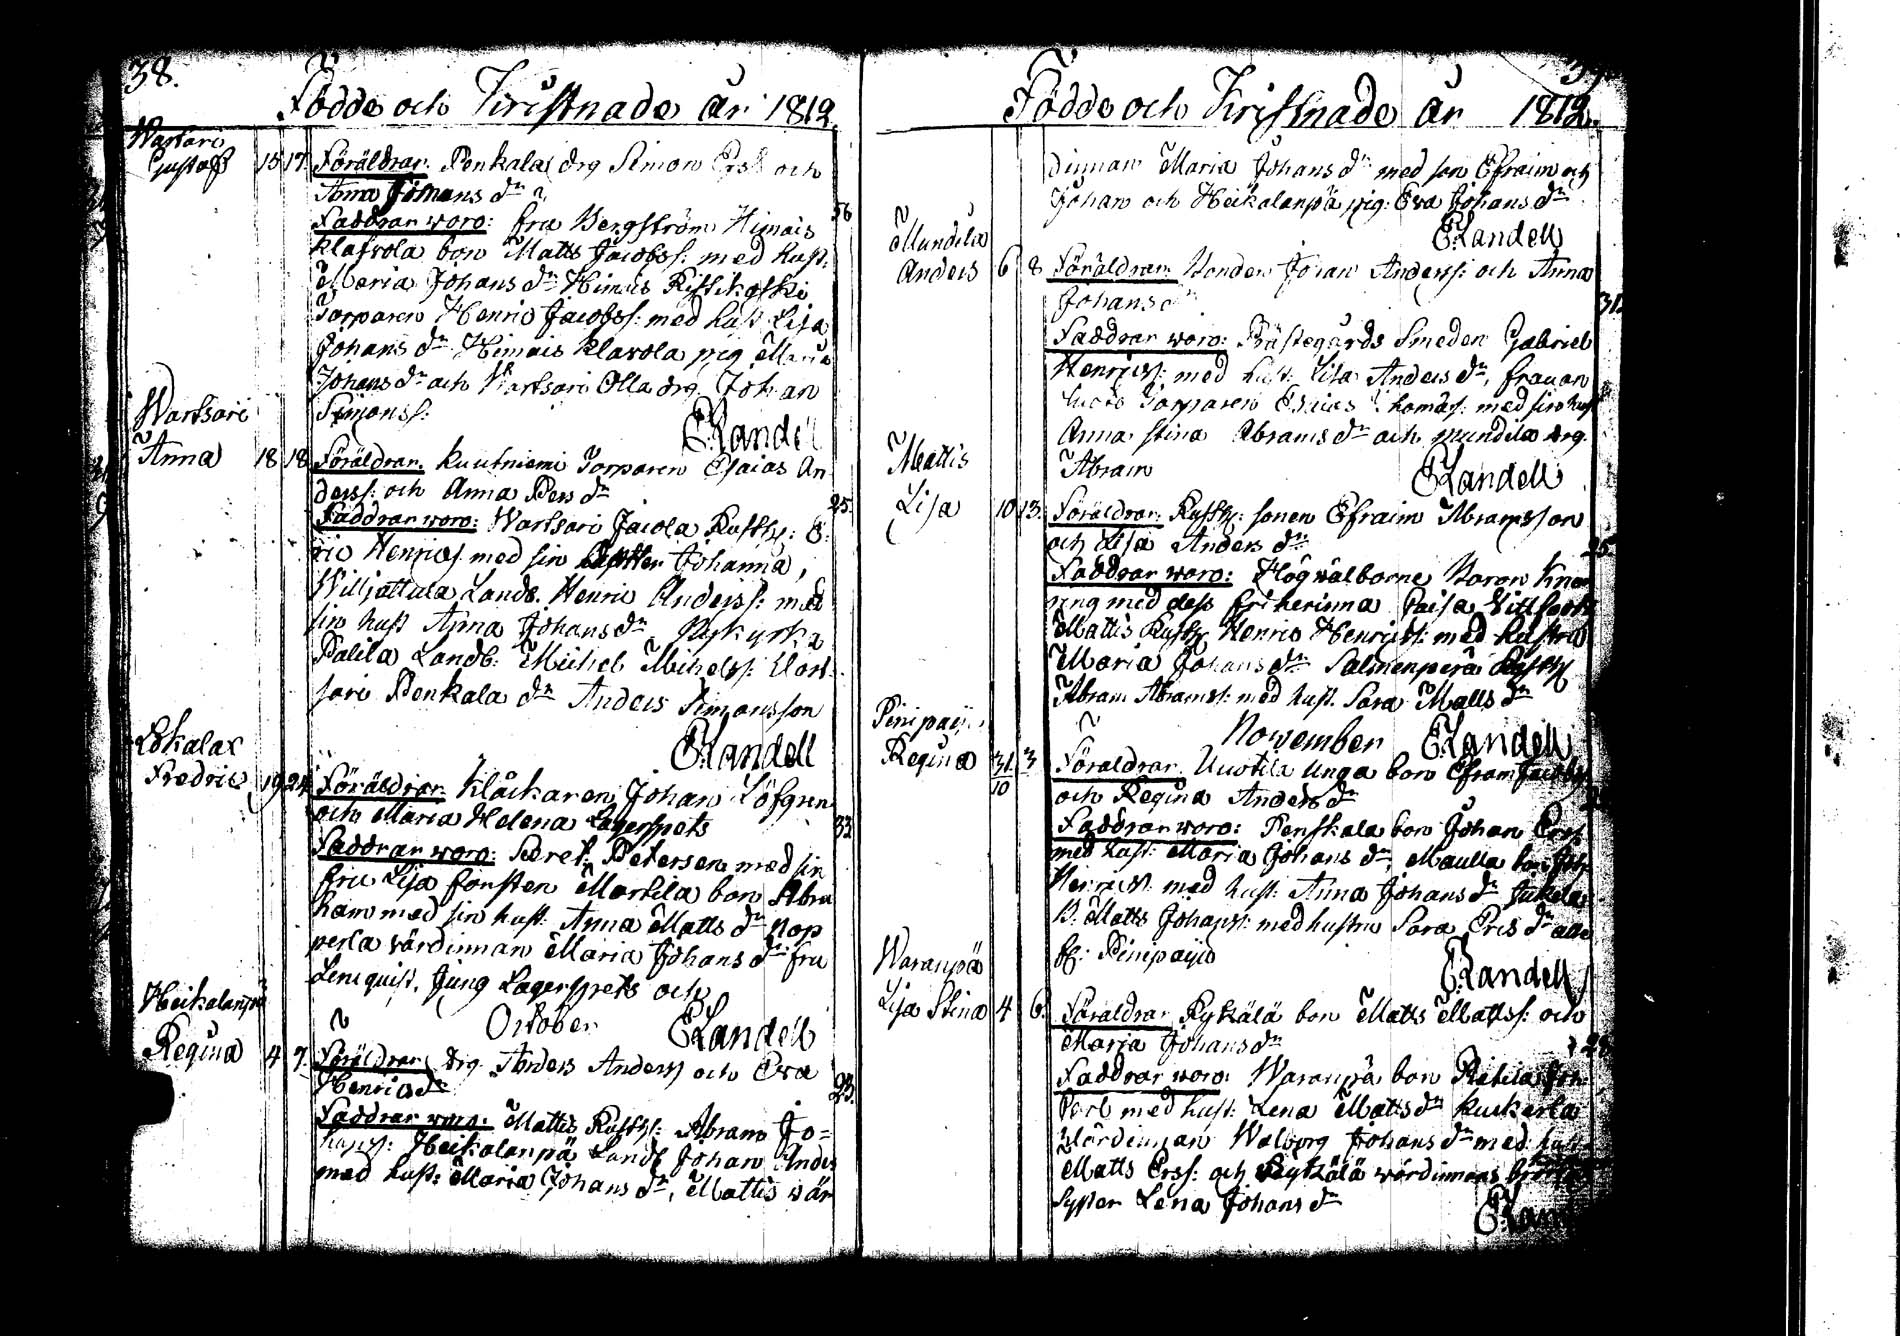 38.
Födde och Kristnade år 1812.
Wartsari
Gustaf 15 17. Föräldrar. Penkala drg Simon Ers: och
Anna Johans dr
56
Faddrar woro: fru Bergström Himais
Klafvola bon Matts Jacobss: med hust:
Maria Johans dr Himais Ristikoski
Torparen Henric Jacobss: med hust Lisa
Johans dr Himais Klavola pig Maria
Johans dr och Wartsari Olla drg. Johan
Simonss:
E:Landell
Wartsari
Anna 18 18 Föräldrar. Kuutniemi Torparen Esaias An
derss: och Anna Pers dr
25.
Faddrar woro: Wartsari Jacola Rusth: E:
ric Henrics: med sin Johanna,
Willjattula Landb. Henric Anderss: med
sin hust Anna Johans dr Nykyrka
Palila Landb: Michel Michelss: Wart
sari Penkala dr Anders Simonsson
E:Landell
Lökalax
Fredric 19 24. Föräldrar. Klåckaren Johan Löfgren
och Maria Helena Lagerspets
33
Faddrar woro: Secret: Petersen med sin
fru Lisa Forsten Martila bon Abra
ham med sin hust: Anna Matts dr Nop
perla värdinnan Maria Johans dr fru
Lemquist, Jung Lagerspets och
October E:Landell
Heikalanpä
Regina 4 7. Föräldrar drg Anders Anderss och Eva
Henrics dr
23.
Faddrar woro: Mattis Rusth: Abram Jo=
hanss: Heikalanpä Landb Johan Anders
med hust: Maria Johans dr, Mattis wär
39
Födde och Kristnade år 1812.
dinnan Maria Johans dr med son Efraim och
Johan och Heikalanpä pig: Eva Johans dr
E:Landell
Mundila
Anders 6 8 Föräldrar: Bonden Johan Anderss: och Anna
Johans dr
31.
Faddrar woro: Prästegårds Smeden Gabriel
Henricss: med hust: Lisa Anders dr, frauan
Torparen Esaias Thomas: med sin hust
Anna Stina Abrams dr och Mundila drg.
Abram
E:Landell
Mattis
Lisa 10 13. Föräldrar: Rusth: sonen Efraim Abramsson
och Lisa Anders dr
25.
Faddrar woro: Högwälborne Baron Knor
ring med dess friherinna
Mattis Rusth Henric Henricss: med hustru
Maria Johans dr Salmenperä Rusth
Abram Abramss: med hust. Sara Matts dr
November E:Landell
Pinipaijo
Regina 31/10 3 Föräldrar. Uuotila Unga bon Efraim Jacobss
och Regina Anders dr
Faddrar woro: Penskala bon Johan Erss
med hust: Maria Johans dr, Maulla bon Joh
Henricss: med hust: Anna Johans dr Jukola
B. Matts Johanss: med hustru Sara Ers dr alla
fr: Pinipaijo
E:Landell
Waranpä
Lisa Stina 4 6. Föräldrar Rykälä bon Matts Matss: och
Maria Johans dr
28.
Faddrar woro: Waranpä bon
med hust: Lena Matts dr Kuckerla
Wärdinnan Walborg Johans dr med
Matts Erss: och Rykälä wärdinnans
Syster Lena Johans dr
E:Landell